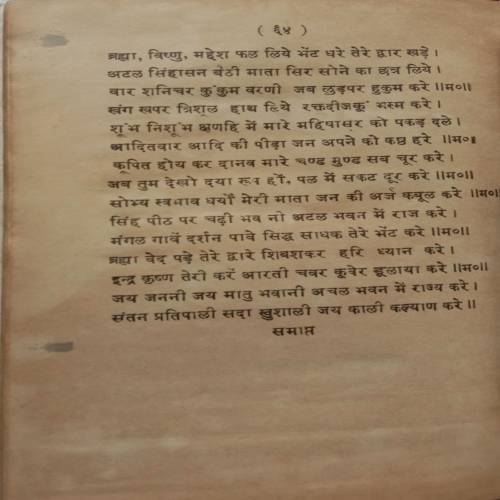 ( ६४ )
ब्रह्मा, विष्णु, महेश फल लिये भेंट धरे तेरे द्वार खड़े ।
अटल सिंहासन बैठी माता सिर सोने का छत्र लिये ।
वार शनिचर कुंकुम वरणी जब लुड़पर हुकुम करे ।।म०।।
खंग खपर त्रिशूल हाथ लिये रक्तदीजकूं भस्म करे ।
शूंभ निशूंभ क्षणहि में मारे महिषासर को पकड़ दले ।
आदितवार आदि की पीड़ा जन अपने को कष्ठ हरे ।।म०॥
कूपित होय कर दानव मारे चण्ड मुण्ड सब चूर करे ।
अब तुम देखो दया रूप हों, पल में सकट दूर करे ।।म०।।
सोभ्य स्वभाव धर्यो मेरी माता जन की अर्ज कबूल करे ।।म०।।
सिंह पीठ पर चढ़ी भव नी अटल भवन में राज करे ।
मंगल गावें दर्शन पावे सिद्ध साधक तेरे भेंट करे ।।म०।।
ब्रह्मा वेद पढ़े तेरे द्वारे शिबशकर हरि ध्यान करे ।
इन्द्र कृष्ण तेरी करें आरती चवर कूवेर डुलाया करे ।।म०।।
जय जननी जय मातु भवानी अचल भवन में राज्य करे ।
संतन प्रतिपाली सदा खुशाली जय काली कल्याण करे ।।
समाप्त